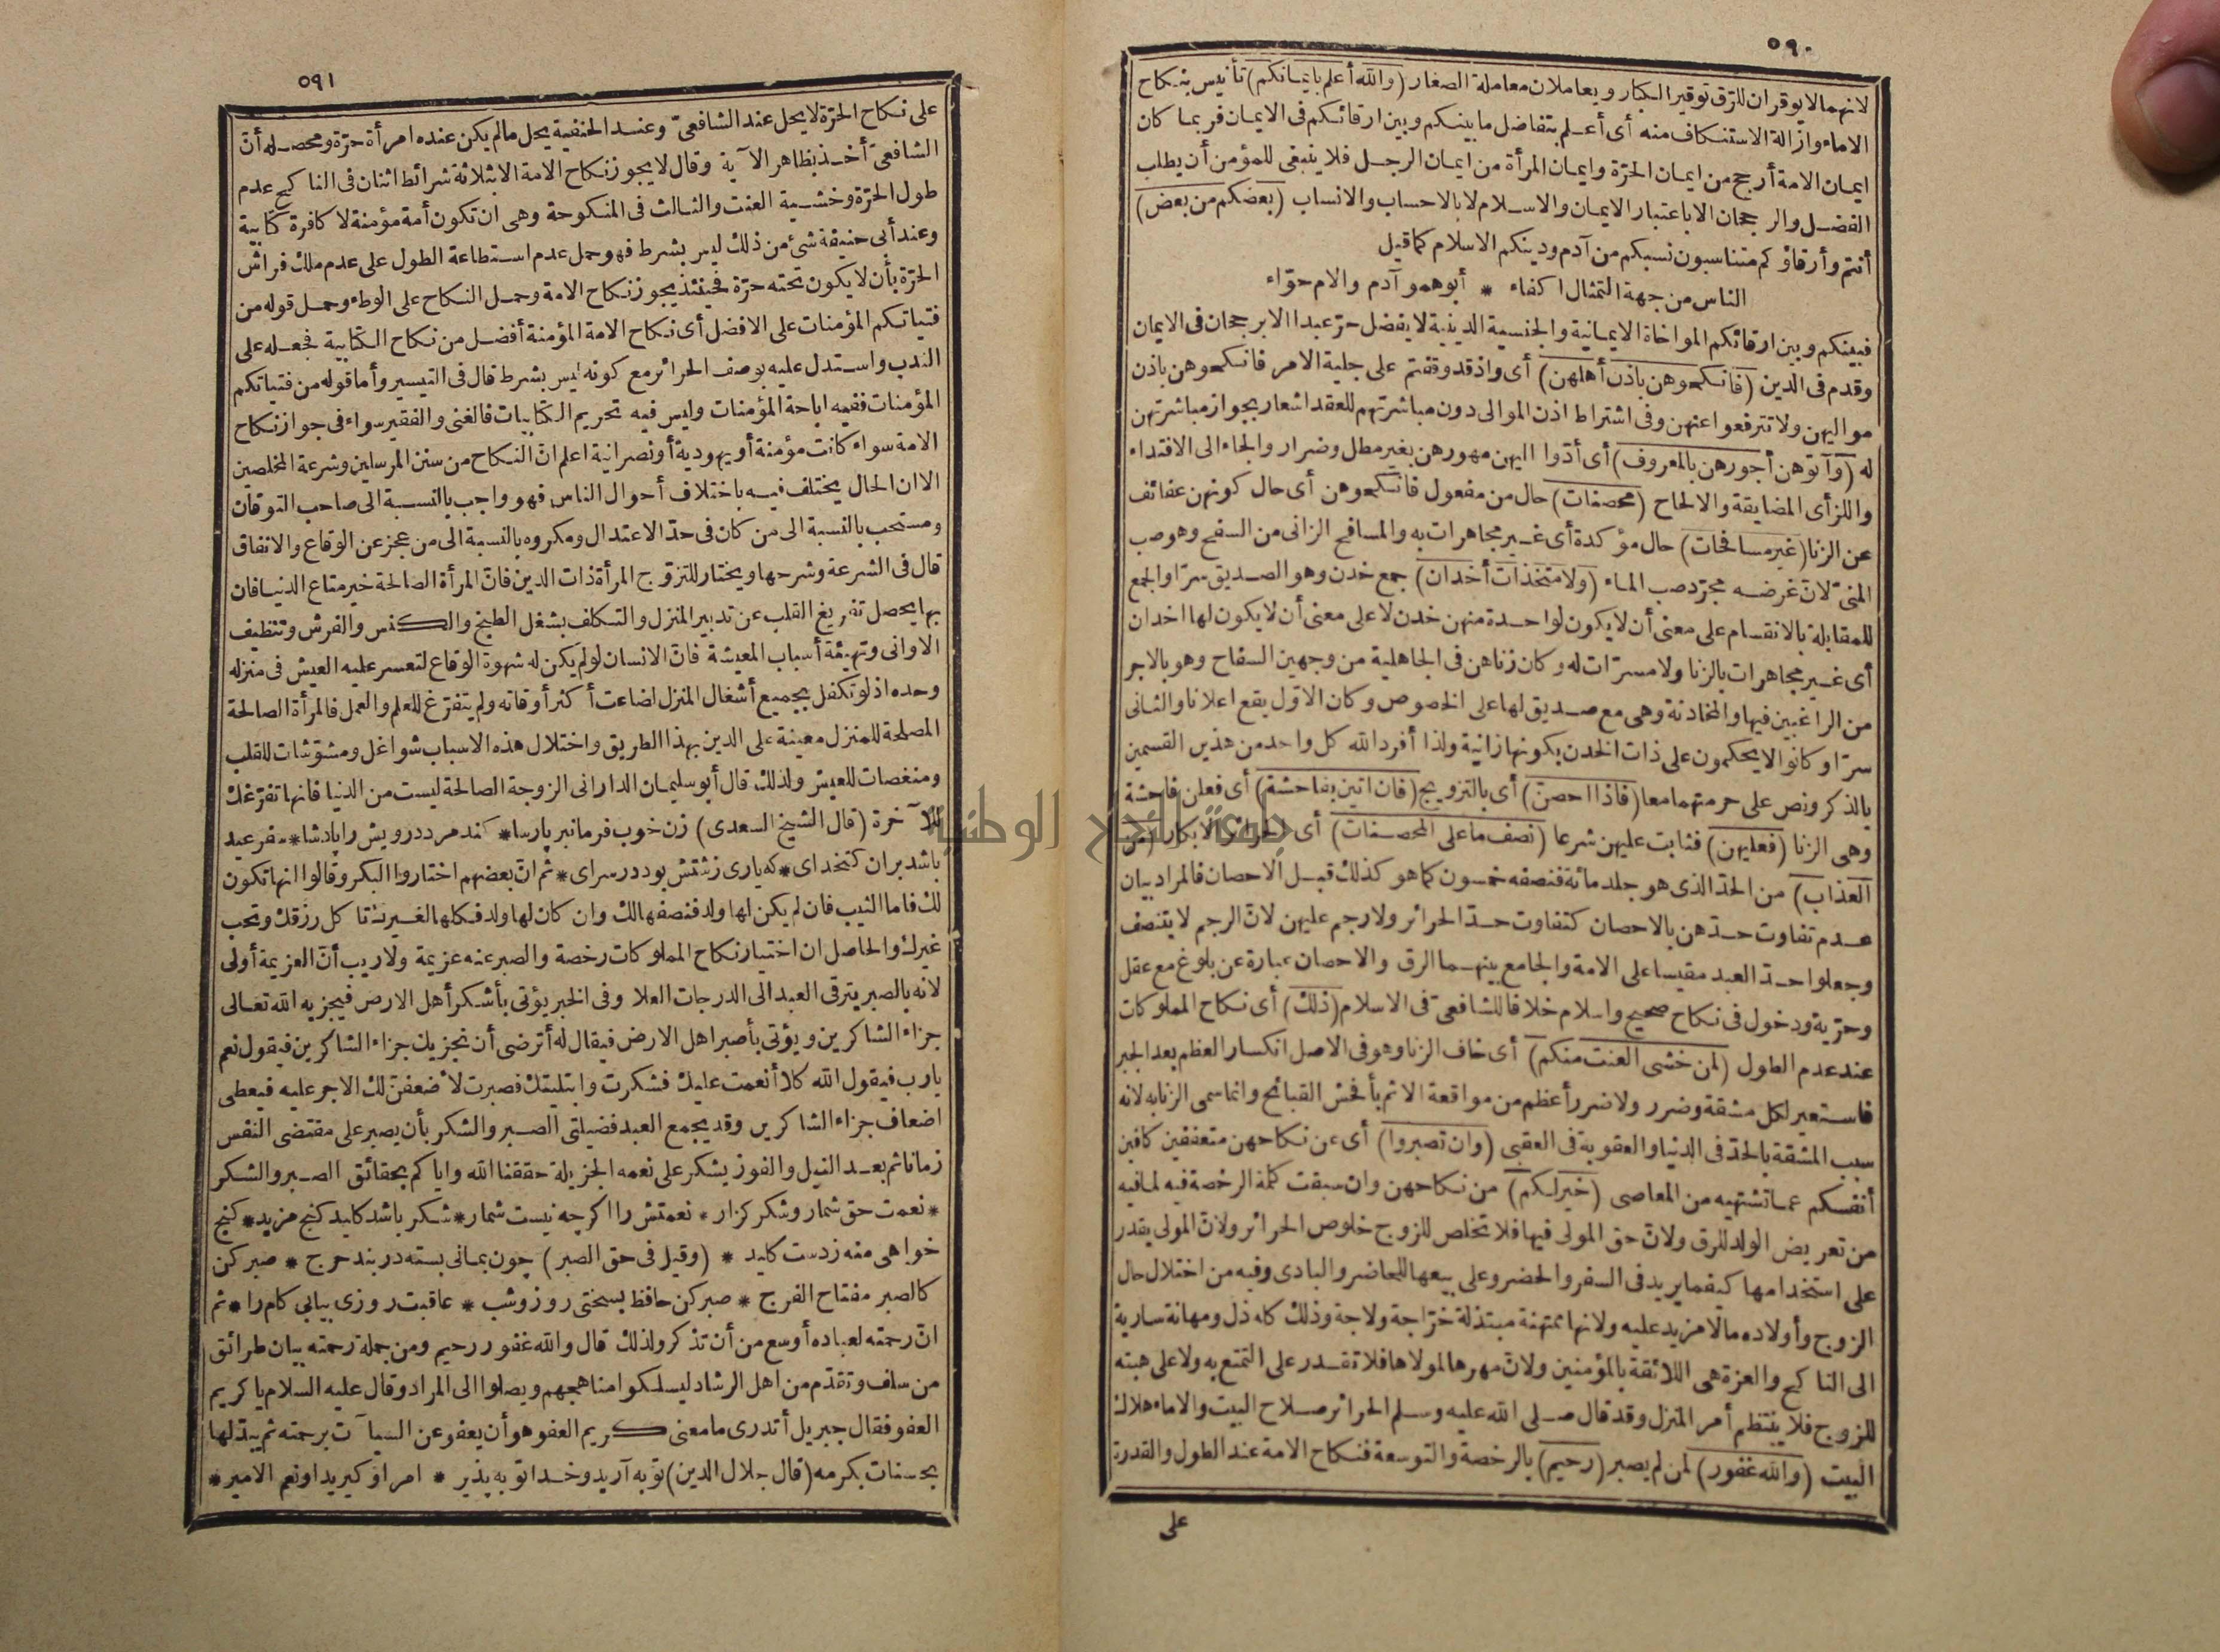 ٥٩٠
لانهما لا يوقران للرق توقير الكبار ويعاملان معاملة الصغار (والله أعلم بايمانكم) تأنيس بنكاح
الاماء وازالة الاستنكاف منه أى أعلم بتفاضل ما بينكم وبين ارقائكم فى الايمان فربما كان
ايمان الامة أرجح من ايمان الحرّة وايمان المرأة من ايمان الرجل فلا ينبغى للمؤمن أن يطلب
الفضل والرجحان الا باعتبار الايمان والاسلام لا بالاحساب والانساب (بعضكم من بعض)
أنتم وأرقاؤكم متناسبون نسبكم من آدم ودينكم الاسلام كما قيل
الناس من جهة التمثال اكفاء * أبوهمو آدم والام حوّاء
فبينكم وبين ارقائكم المواخاة الايمانية والجنسية الدينية لا يفضل حرّ عبدا الا برجحان فى الايمان
وقدم فى الدين (فانكحوهن باذن أهلهن) أى واذ قد وقفتم على جلية الامر فانكحوهن باذن
مواليهن ولا تترفعوا عنهن وفى اشتراط اذن الموالى دون مباشرتهم للعقد اشعار بجواز مباشرتهن
له (وآتوهن أجورهن بالمعروف) أى أدّوا اليهن مهورهن بغير مطل وضرار والجاء الى الاقتداء
واللز أى المضايقة والالحاح (محصنات) حال من مفعول فانكحوهن أى حال كونهن عفائف
عن الزنا (غير مسافحات) حال مؤكدة أى غير مجاهرات به والمسافح الزانى من السفح وهو صب
المنىّ لانّ غرضه مجرّد صب الماء (ولا متخذات أخدان) جمع خدن وهو الصديق سرّا والجمع
للمقابلة بالانقسام على معنى أن لا يكون لواحدة منهن خدن لا على معنى أن لا يكون لها اخدان
أى غير مجاهرات بالزنا ولا مسرّات له وكان زناهن فى الجاهلية من وجهين السفاح وهو بالاجر
من الراغبين فيها والمخادنة وهى مع صديق لها على الخصوص وكان الاوّل يقع اعلانا والثانى
سرّا وكانوا لا يحكمون على ذات الخدن بكونها زانية ولذا أفرد الله كل واحد من هذين القسمين
بالذكر ونص على حرمتهما معا (فاذا احصنّ) أى بالتزويج (فان اتين بفاحشة) أى فعلن فاحشة
وهى الزنا (فعليهن) فثابت عليهن شرعا (نصف ما على المحصنات) أى الحرائر الابكار (من
العذاب) من الحدّ الذى هو جلد مائة فنصفه خمسون كما هو كذلك قبل الاحصان فالمراد بيان
عدم تفاوت حدّهن بالاحصان كتفاوت حدّ الحرائر ولا رجم عليهن لانّ الرجم لا يتنصف
وجعلوا حدّ العبد مقيسا على الامة والجامع بينهما الرق والاحصان عبارة عن بلوغ مع عقل
وحرّية ودخول فى نكاح صحيح واسلام خلافا للشافعىّ فى الاسلام (ذلك) أى نكاح المملوكات
عند عدم الطول (لمن خشى العنت منكم) أى خاف الزنا وهو فى الاصل انكسار العظم بعد الجبر
فاستعير لكل مشقة وضرر ولا ضرر أعظم من مواقعة الاثم بأفحش القبائح وانما سمى الزنا به لانه
سبب المشقة بالحدّ فى الدنيا والعقوبة فى العقبى (وان تصبروا) أى عن نكاحهن متعففين كافين
أنفسكم عما تشتهيه من المعاصى (خير لكم) من نكاحهن وان سبقت كلمة الرخصة فيه لما فيه
من تعريض الولد للرق ولانّ حق المولى فيها فلا تخلص للزوج خلوص الحرائر ولانّ المولى يقدر
على استخدامها كيفما يريد فى السفر والحضر وعلى بيعها للحاضر والبادى وفيه من اختلال حال
الزوج وأولاده مالا مزيد عليه ولانها ممتهنة مبتذلة خرّاجة ولاجة وذلك كله ذل ومهانة سارية
الى الناكح والعزة هى اللائقة بالمؤمنين ولانّ مهرها لمولاها فلا تقدر على التمتع به ولا على هبته
للزوج فلا ينتظم أمر المنزل وقد قال صلى الله عليه وسلم الحرائر صلاح البيت والاماء هلاك
البيت (والله غفور) لمن لم يصبر (رحيم) بالرخصة والتوسعة فنكاح الامة عند الطول والقدرة
على
٥٩١
على نكاح الحرّة لا يحل عند الشافعىّ وعند الحنفية يحل مالم يكن عنده امرأة حرّة ومحصله أنّ
الشافعىّ أخذ بظاهر الآية وقال لا يجوز نكاح الامة الا بثلاثة شرائط اثنان فى الناكح عدم
طول الحرّة وخشية العنت والثالث فى المنكوحة وهى ان تكون أمة مؤمنة لا كافرة كتابية
وعند أبى حنيفة شئ من ذلك ليس بشرط فهو حمل عدم استطاعة الطول على عدم ملك فراش
الحرّة بأن لا يكون تحته حرّة فحينئذ يجوز نكاح الامة وحمل النكاح على الوطء وحمل قوله من
فتياتكم المؤمنات على الافضل أى نكاح الامة المؤمنة أفضل من نكاح الكتابية فجعله على
الندب واستدل عليه بوصف الحرائر مع كونه ليس بشرط قال فى التيسير وأما قوله من فتياتكم
المؤمنات ففيه اباحة المؤمنات وليس فيه تحريم الكتابيات فالغنى والفقير سواء فى جواز نكاح
الامة سواء كانت مؤمنة أو يهودية أو نصرانية اعلم انّ النكاح من سنن المرسلين وشرعة المخلصين
الا ان الحال يختلف فيه باختلاف أحوال الناس فهو واجب بالنسبة الى صاحب التوقان
ومستحب بالنسبة الى من كان فى حدّ الاعتدال ومكروه بالنسبة الى من عجز عن الوقاع والانفاق
قال فى الشرعة وشرحها ويختار للتزوّج المرأة ذات الدين فانّ المرأة الصالحة خير متاع الدنيا فان
بها يحصل تفريغ القلب عن تدبير المنزل والتكلف بشغل الطبخ والكنس والفرش وتنظيف
الاوانى وتهيئة أسباب المعيشة فانّ الانسان لو لم يكن له شهوة الوقاع لتعسر عليه العيش فى منزله
وحده اذ لو تكفل بجميع أشغال المنزل لضاعت أكثر أوقاته ولم يتفرّغ للعلم والعمل فالمرأة الصالحة
المصلحة للمنزل معينة على الدين بهذا الطريق واختلال هذه الاسباب شواغل ومشوّشات للقلب
ومنغصات للعيش ولذلك قال أبو سليمان الدارانى الزوجة الصالحة ليست من الدنيا فانها تفرّغك
للآخرة (قال الشيخ السعدى) زن خوب فرمانبر پارسا * كند مرد درويش را پادشا * سفر عيد
باشد بران كتخداى * كه يارى زشتش بود در سراى * ثم انّ بعضهم اختاروا البكر وقالوا انها تكون
لك فاما الثيب فان لم يكن لها ولد فنصفها لك وان كان لها ولد فكلها لغيرك تاكل رزقك وتحب
غيرك والحاصل ان اختيار نكاح المملوكات رخصة والصبر عنه عزيمة ولا ريب أنّ العزيمة أولى
لانه بالصبر يترقى العبد الى الدرجات العلا وفى الخبر يؤتى بأشكر أهل الارض فيجزيه الله تعالى
جزاء الشاكرين ويؤتى بأصبر اهل الارض فيقال له أترضى أن نجزيك جزاء الشاكرين فيقول نعم
يارب فيقول الله كلا أنعمت عليك فشكرت وابتليتك فصبرت لأضعفنّ لك الاجر عليه فيعطى
اضعاف جزاء الشاكرين وقد يجمع العبد فضيلتى الصبر والشكر بأن يصبر على مقتضى النفس
زمانا ثم بعد النيل والفوز يشكر على نعمه الجزيلة حققنا الله واياكم بحقائق الصبر والشكر
* نعمت حق شمار وشكر كزار * نعمتش را اكرچه نيست شمار * شكر باشد كليد كنج مزيد * كنج
خواهى منه زدست كليد * (وقيل فى حق الصبر) چون بمانى بسته در بند حرج * صبر كن
كالصبر مفتاح الفرج * صبر كن حافظ بسختى روز وشب * عاقبت روزى بيابى كام را * ثم
انّ رحمته لعباده أوسع من أن تذكر ولذلك قال والله غفور رحيم ومن جملة رحمته بيان طرائق
من سلف وتقدّم من اهل الرشاد ليسلكوا مناهجهم ويصلوا الى المراد وقال عليه السلام يا كريم
العفو فقال جبريل أتدرى ما معنى كريم العفو هو أن يعفو عن السيآت برحمته ثم يبدّلها
بحسنات بكرمه (قال جلال الدين) توبه آريد وخدا توبه پذير * امر او كيريد او نعم الامير *
جامعة النجاح الوطنية